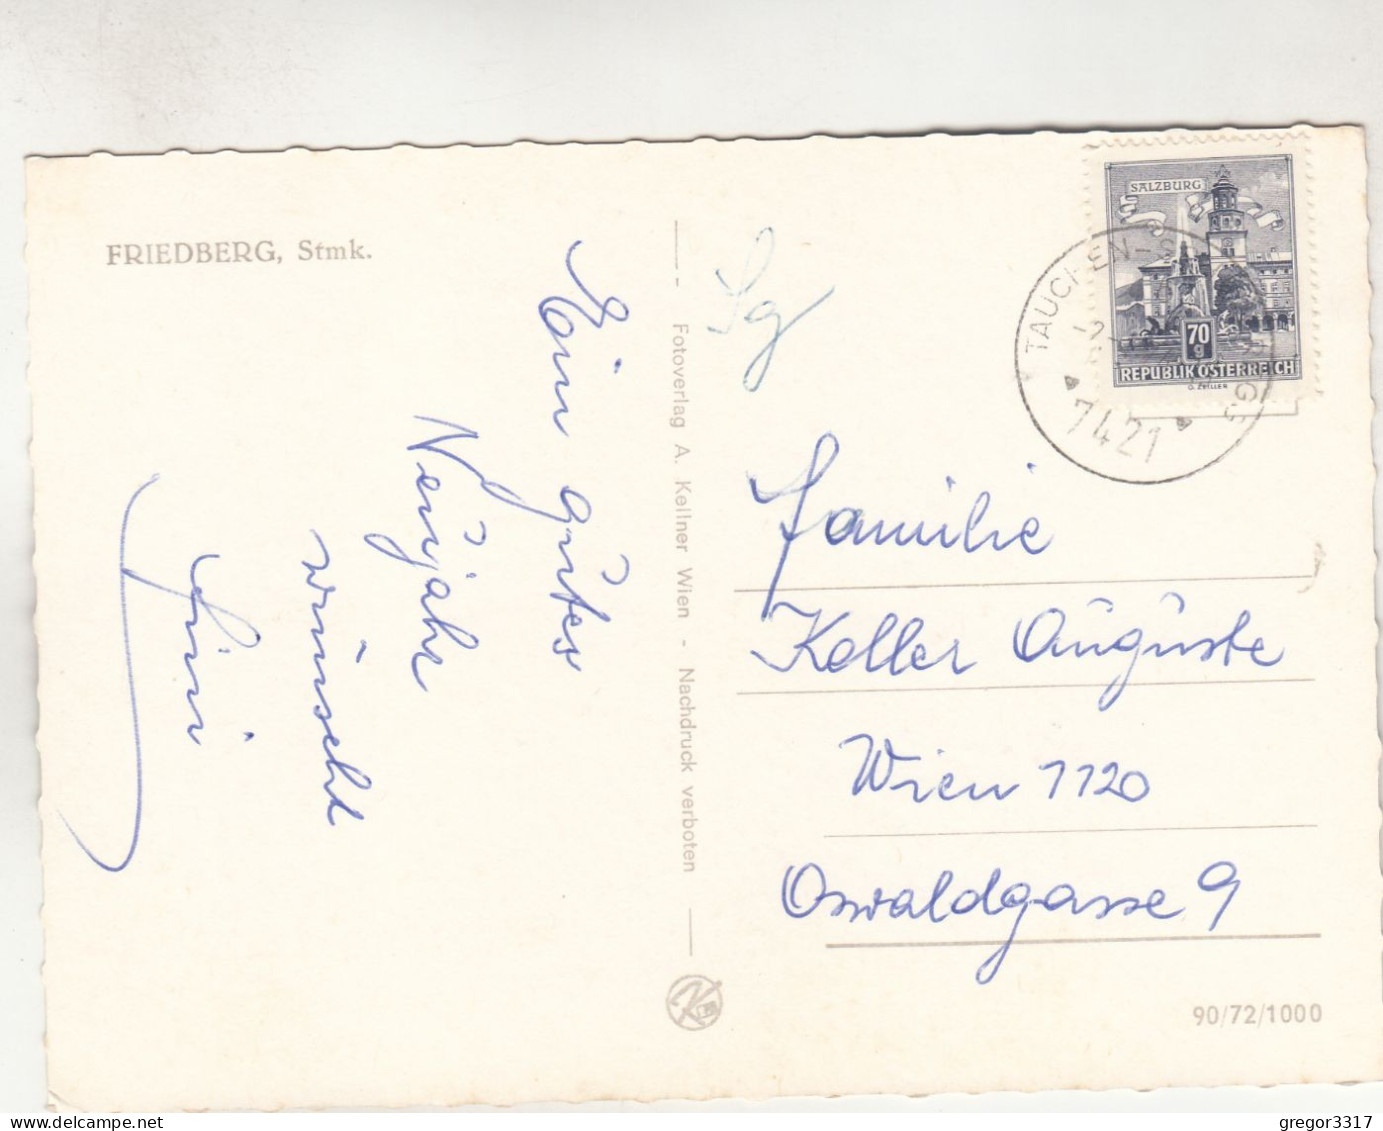 FRIEDBERG, Stmk.
Ein gutes
Neujahr
wünscht
Fini
Fotoverlag A. Kellner Wien - Nachdruck verboten
Sg
SALZBURG
70
g
REPUBLIK ÖSTERREICH
7421
Familie
Keller Auguste
Wien 1120
Oswaldgasse 9
90/72/1000
gregor3317